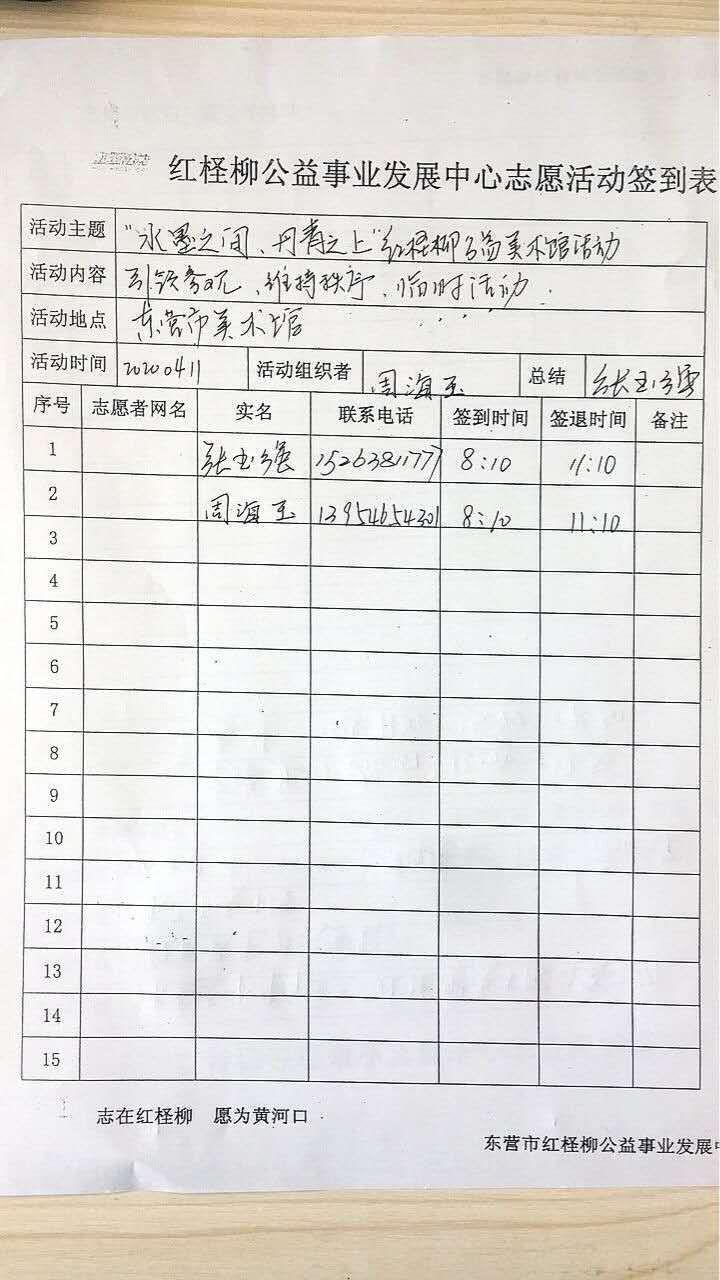 红柽柳公益事业发展中心志愿活动签到表
活动主题 "水墨之间、丹青之上"红柽柳公益美术馆活动
活动内容 引领参观、维持秩序、临时活动.
活动地点 东营市美术馆
活动时间 20200411 活动组织者 周海玉 总结 张玉强
序号 志愿者网名 实名 联系电话 签到时间 签退时间 备注
1 张玉强 15263811777 8:10 11:10
2 周海玉 13954654301 8:10 11:10
3
4
5
6
7
8
9
10
11
12
13
14
15
志在红柽柳 愿为黄河口
东营市红柽柳公益事业发展中